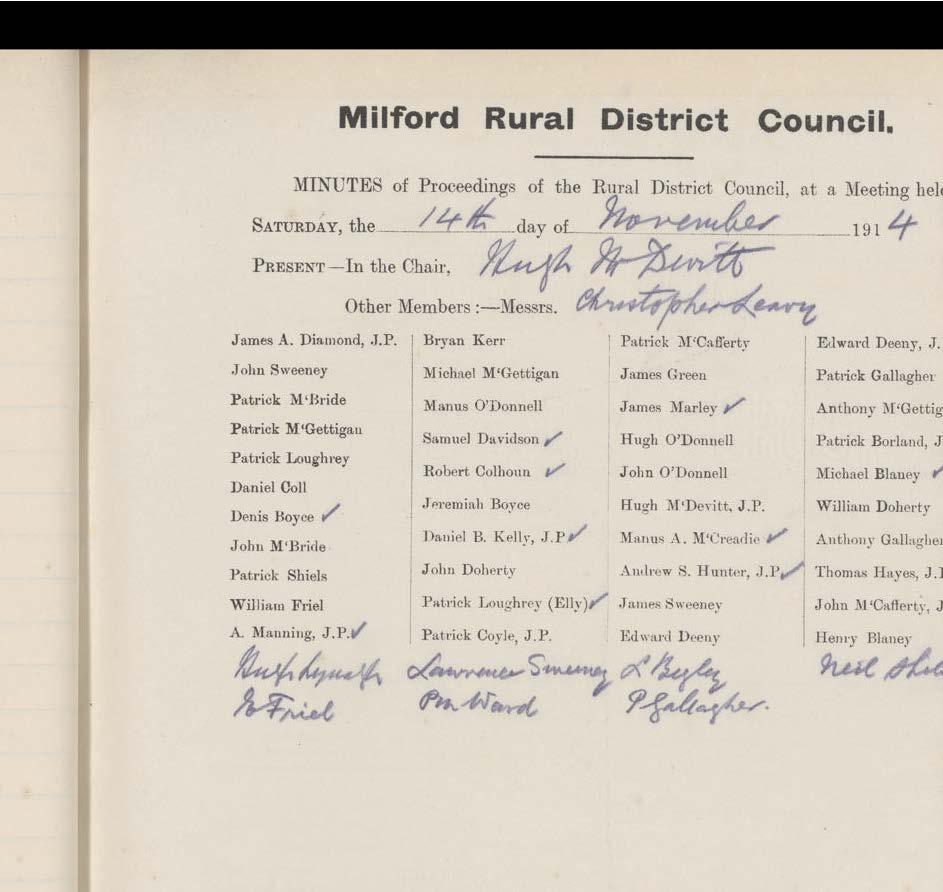 Milford Rural District Council.
MINUTES of Proceedings of the Rural District Council, at a Meeting held
SATURDAY, the 14th day of November 1914
PRESENT—In the Chair, Hugh McDevitt
Other Members :—Messrs. Christopher Leavy
James A. Diamond, J.P.
John Sweeney
Patrick M‘Bride
Patrick M‘Gettigan
Patrick Loughrey
Daniel Coll
Denis Boyce ✓
John M‘Bride
Patrick Shiels
William Friel
A. Manning, J.P. ✓
Bryan Kerr
Michael M‘Gettigan
Manus O’Donnell
Samuel Davidson ✓
Robert Colhoun ✓
Jeremiah Boyce
Daniel B. Kelly, J.P ✓
John Doherty
Patrick Loughrey (Elly) ✓
Patrick Coyle, J.P.
Patrick M‘Cafferty
James Green
James Marley ✓
Hugh O’Donnell
John O’Donnell
Hugh M‘Devitt, J.P.
Manus A. M‘Creadie ✓
Andrew S. Hunter, J.P. ✓
James Sweeney
Edward Deeny
Edward Deeny, J.
Patrick Gallagher
Anthony M‘Gettig
Patrick Borland, J
Michael Blaney ✓
William Doherty
Anthony Gallagher
Thomas Hayes, J.P
John M‘Cafferty, J
Henry Blaney
Hugh Lawrence Sweeney L Begley Neil
Friel Ward P Gallagher.